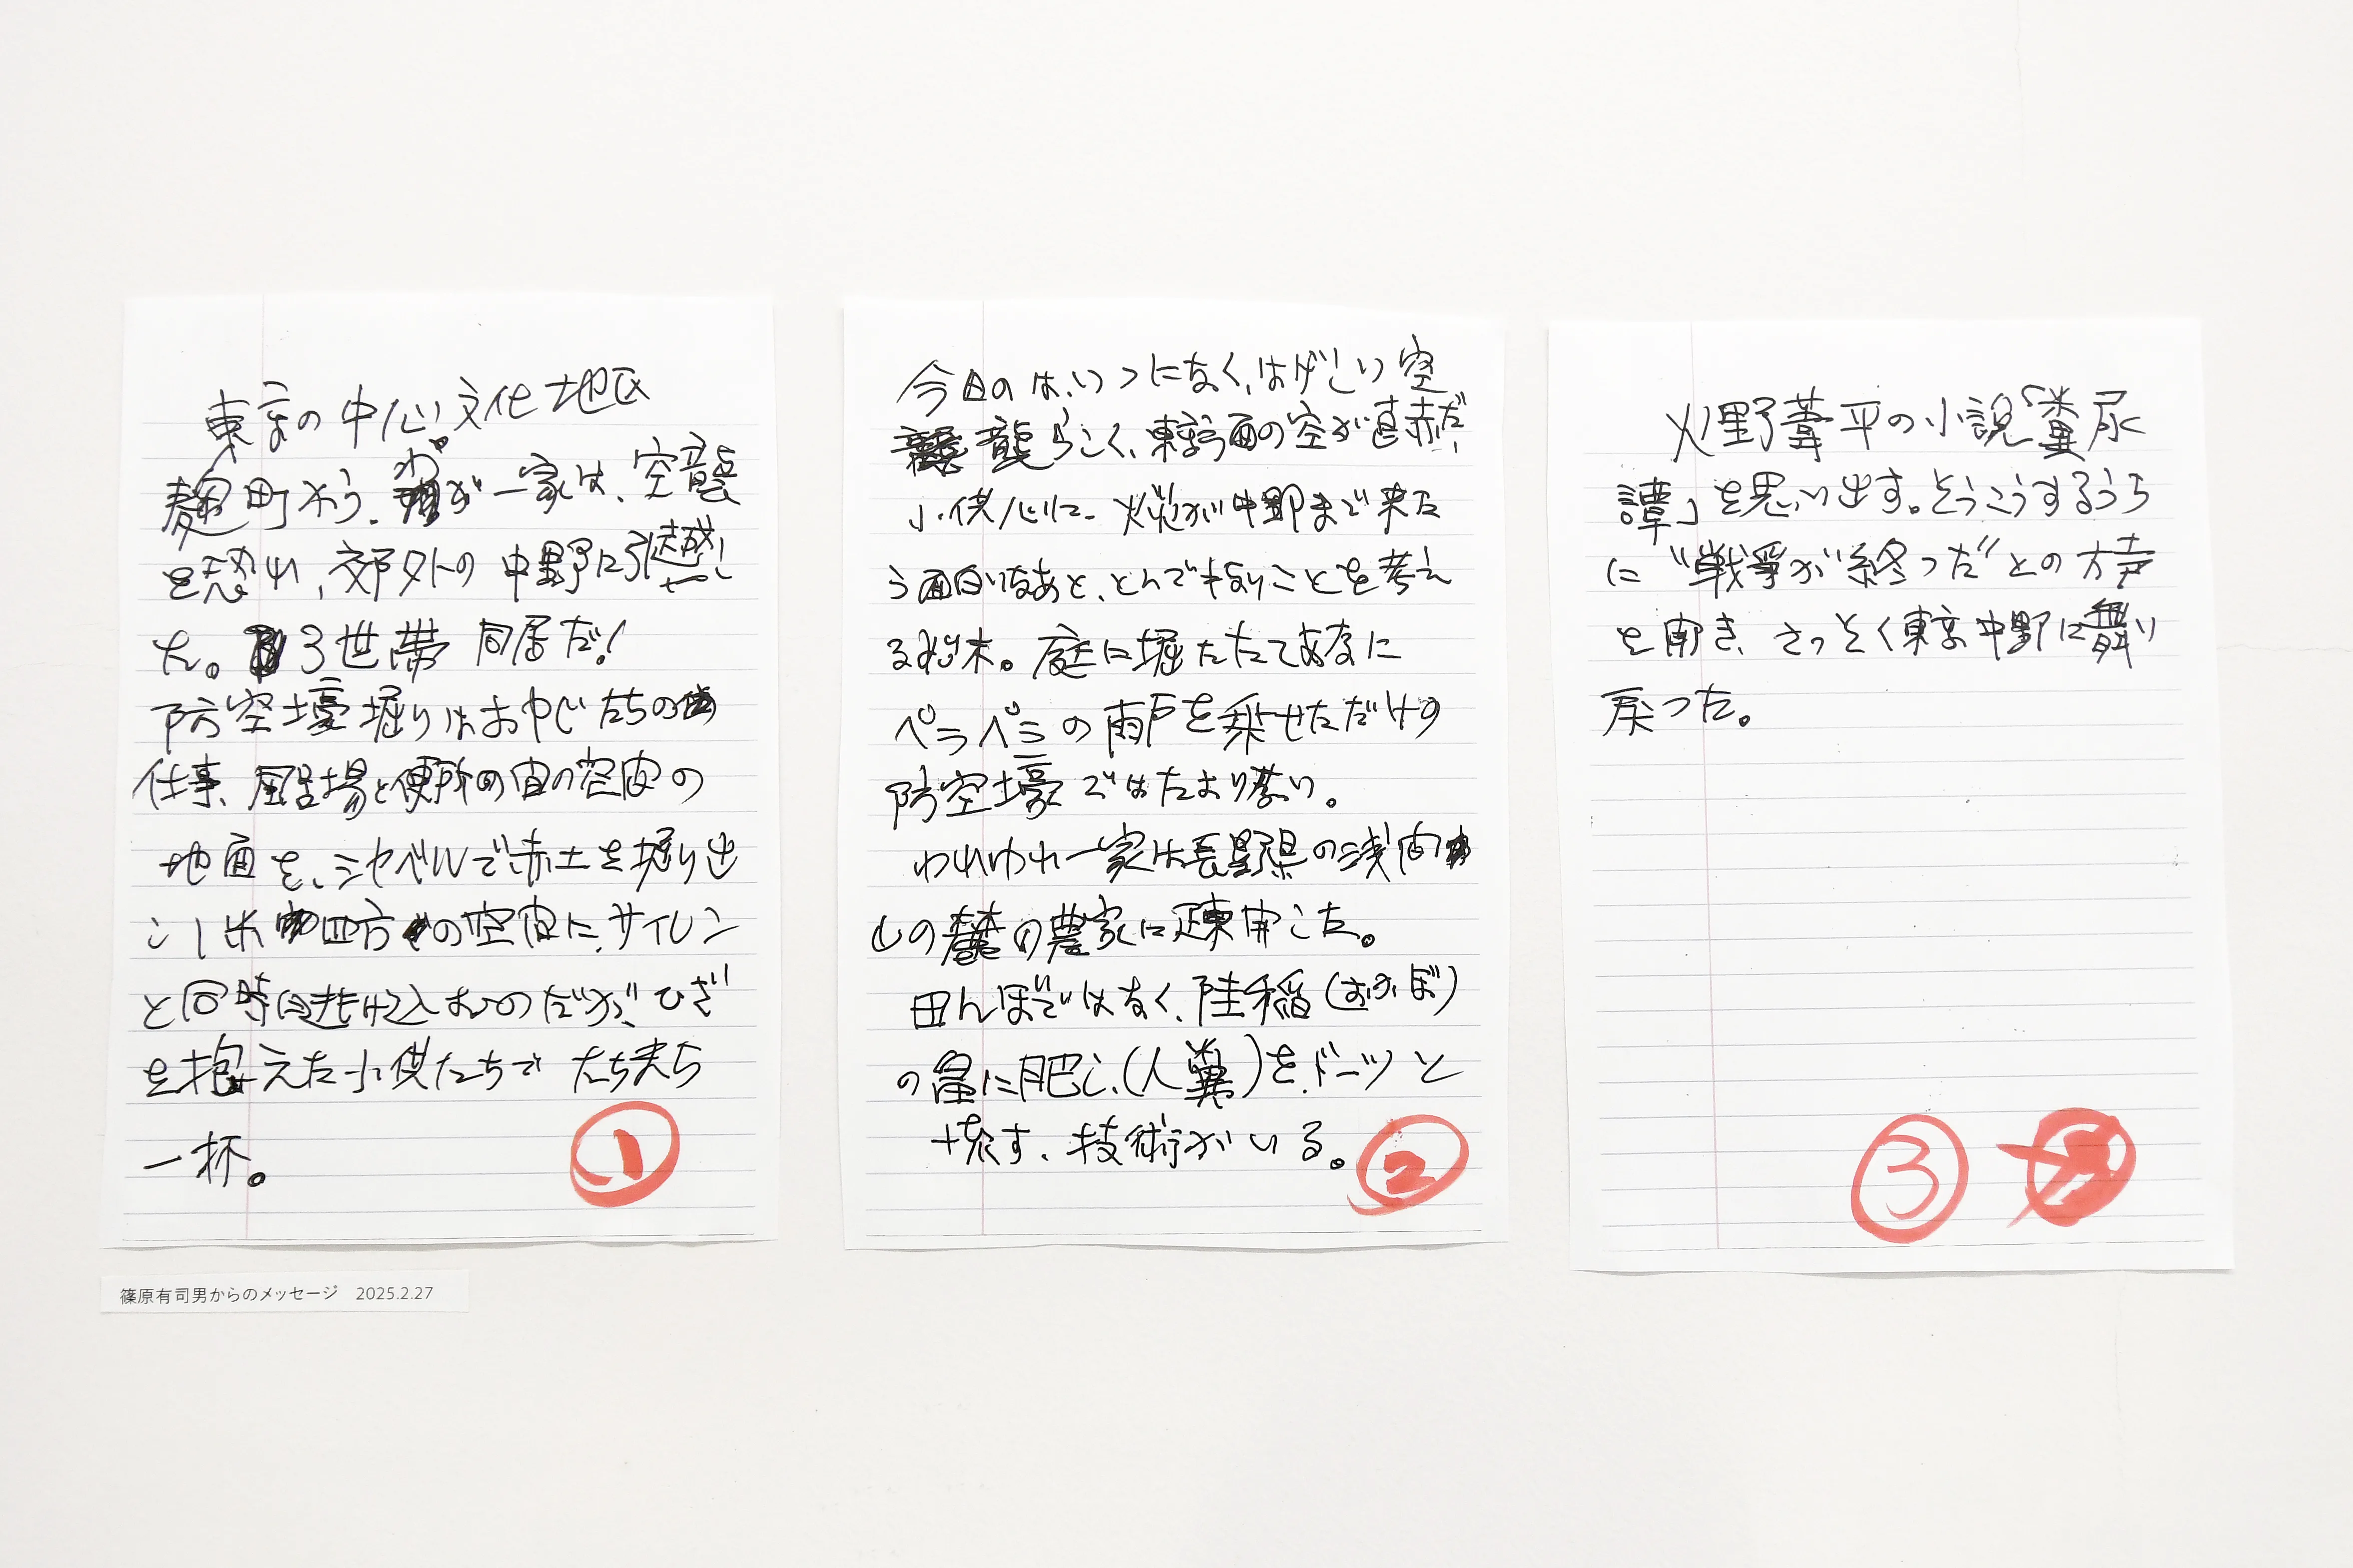 東京の中心文化地区
麹町から、わが一家は、空襲
を恐れ、郊外の中野に引越し
た。3世帯同居だ!
防空壕掘りはおやじたちの
仕事、風呂場と便所の間の空間の
地面を、シャベルで赤土を掘り出
し1米四方の空間に、サイレン
と同時に逃げ込むのだが、ひざ
を抱えた小供たちでたちまち
一杯。
①
今日のは、いつになく、はげしい空
襲らしく、東京方面の空が真赤だ、
小供心に、火災が中野まで来た
ら面白いなあと、とんでもないことを考え
る始末。庭に掘ったたてあなに
ペラペラの雨戸を乗せただけの
防空壕ではたより無い。
われわれ一家は長野県の浅間
山の麓の農家に疎開した。
田んぼではなく、陸稲(おかぼ)
の畠に肥し、(人糞)を、ドーッと
流す、技術がいる。
②
火野葦平の小説「糞尿
譚」を思い出す。そうこうするうち
に“戦争が終った”との大声
を聞き、さっそく東京中野に舞い
戻った。
③
篠原有司男からのメッセージ 2025.2.27